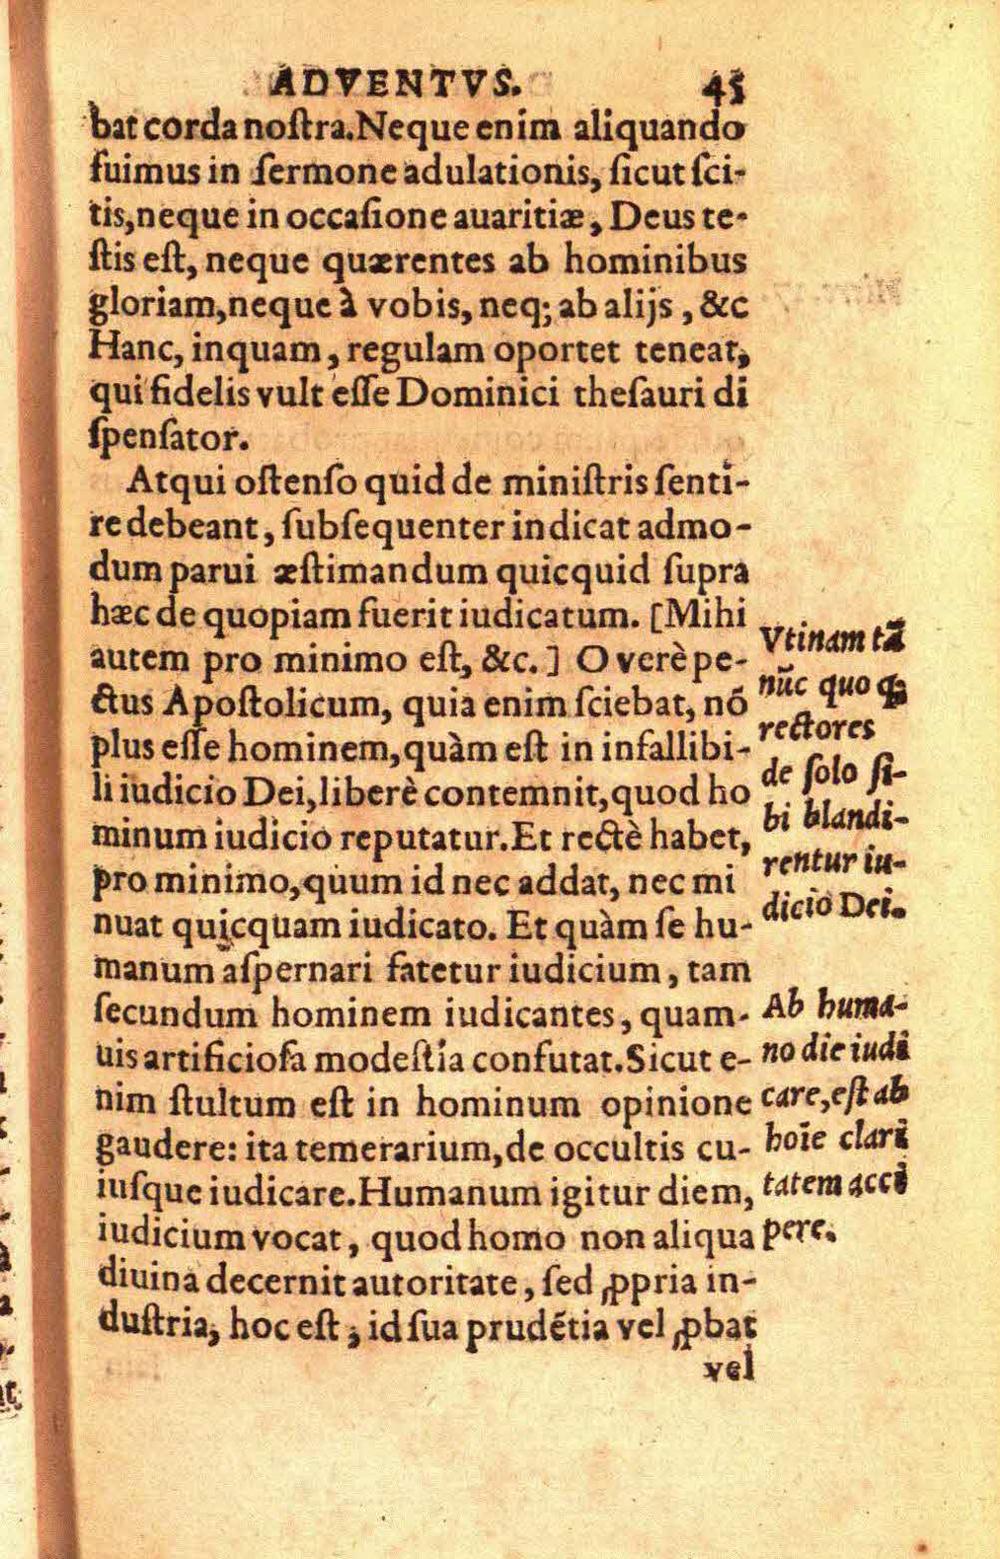 ADVENTVS. 45
bat corda noſtra. Neque enim aliquando
fuimus in ſermone adulationis, ſicut ſci-
tis, neque in occaſione auaritiæ, Deus te-
ſtis eſt, neque quærentes ab hominibus
gloriam, neque à vobis, neq; ab alijs, &c
Hanc, inquam, regulam oportet teneat,
qui fidelis vult eſſe Dominici theſauri di
ſpenſator.
Atqui oſtenſo quid de miniſtris ſenti-
re debeant, ſubſequenter indicat admo-
dum parui æſtimandum quicquid ſupra
hæc de quopiam fuerit iudicatum. [Mihi
autem pro minimo eſt, &c.] O verè pe-
ctus Apoſtolicum, quia enim ſciebat, nō
plus eſſe hominem, quàm eſt in infallibi-
li iudicio Dei, liberè contemnit, quod ho
minum iudicio reputatur. Et rectè habet,
pro minimo, quum id nec addat, nec mi
nuat quicquam iudicato. Et quàm ſe hu-
manum aſpernari fatetur iudicium, tam
ſecundum hominem iudicantes, quam-
uis artificioſa modeſtia confutat. Sicut e-
nim ſtultum eſt in hominum opinione
gaudere: ita temerarium, de occultis cu-
iuſque iudicare. Humanum igitur diem,
iudicium vocat, quod homo non aliqua
diuina decernit autoritate, ſed ꝓpria in-
duſtria, hoc eſt, id ſua prudētia vel ꝓbat
vel
Vtinam tā
nūc quoq̃
rectores
de ſolo ſi-
bi blandi-
rentur iu-
dicio Dei.
Ab huma-
no die iudi
care, eſt ab
hoīe clari
tatem acci
pere.